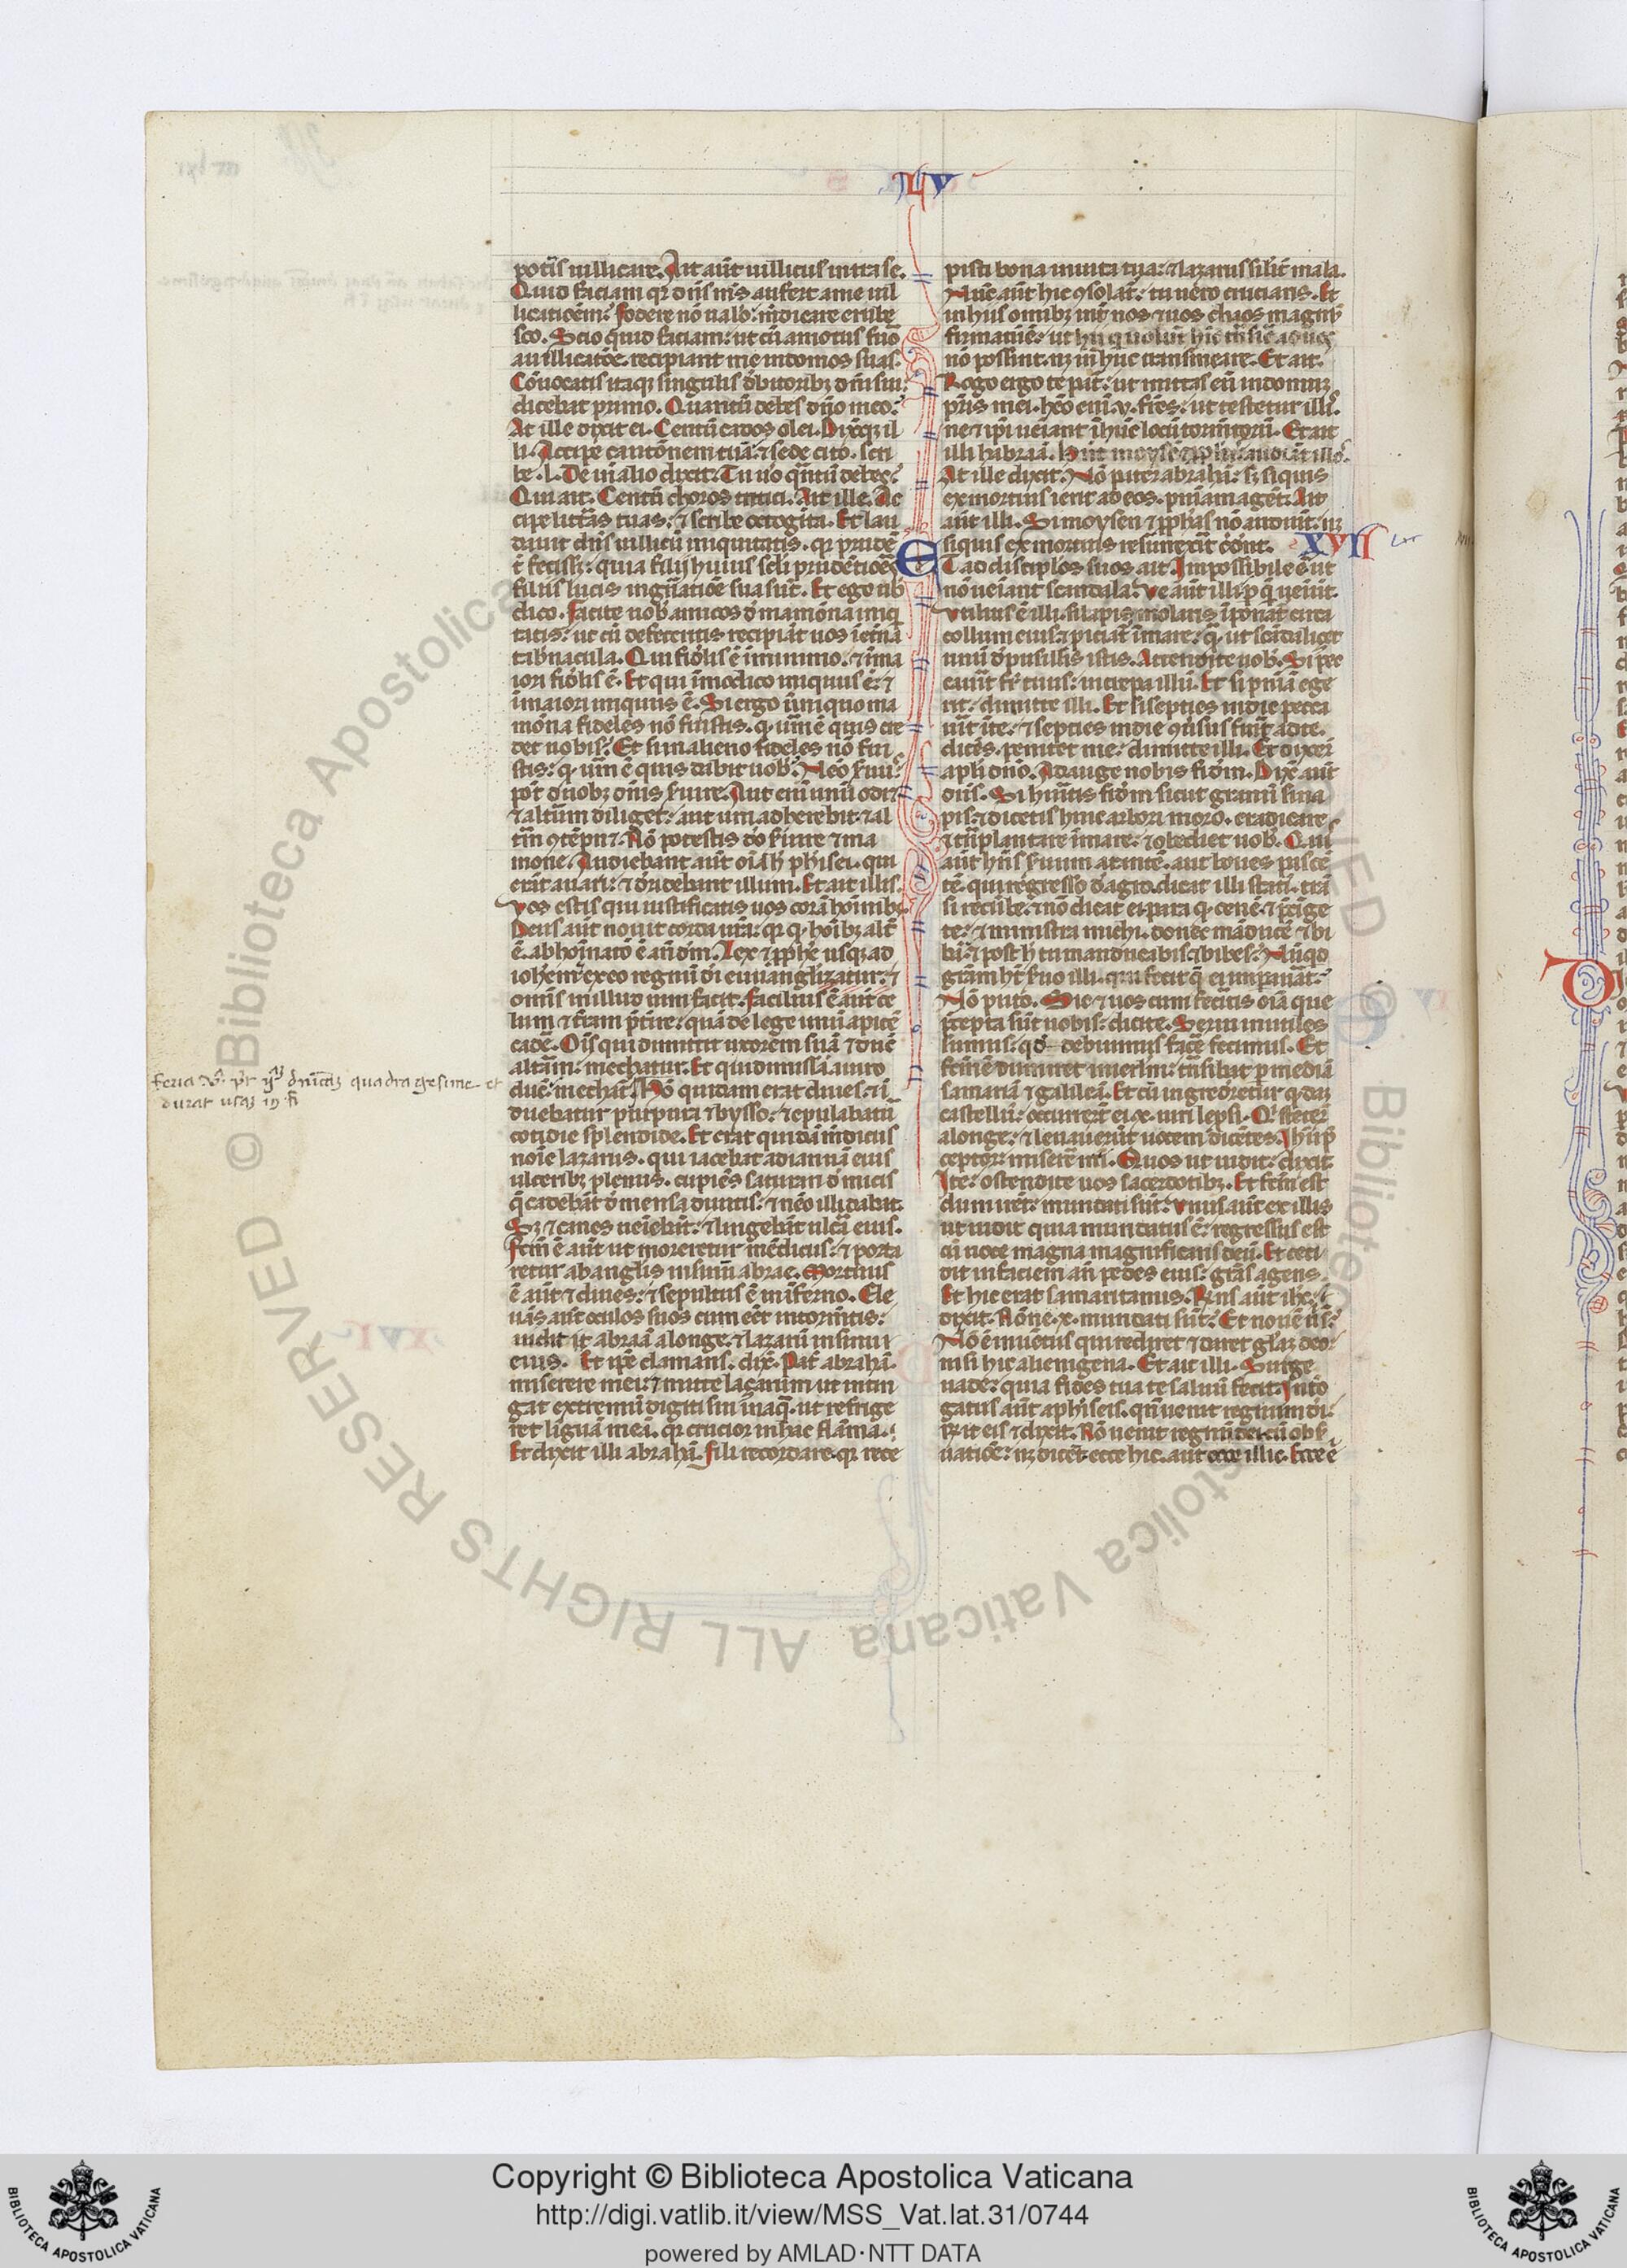 LV
poteris uillicare. Ait aut̄ uillicus intra se.
Quid faciam qr dn̄s m̄s aufert a me uil
licationem? fodere nō ualeo: mēdicare erube
sco. Scio quid faciam: ut cū amotus fuō
a uillicatōe. recipiant me in domos suas.
Conuocatis itaqꝫ singulis dēbitoribꝫ dn̄i sui:
dicebat primo. Quantū debes dn̄o meo?
At ille dixit ei. Centū cados olei. Dixitqꝫ il
li. Accipe cautionem tuā: ⁊ sede cito. scri
be .l. Deīn alio dixit. Tu ūo q̄ntū debes?
Qui ait. Centū choros tritici. Ait ille. Ac
cipe litteras tuas: ⁊ scribe octogīta. Et lau
dauit dn̄s uillicū iniquitatis. qr prudē
t̄ fecisset: quia filii huius sc̄li prudētiores
filiis lucis in gn̄atiōe sua sūt. Et ego uob̄
dico. facite uob̄ amicos d̄ mamōna iniq
tatis: ut cū defeceritis recipiāt uos ī et̄na
tab̄nacula. Qui fidēlis ē in minimo. ⁊ ī ma
iori fidēlis ē. Et qui ī modico iniquus ē: ⁊
ī maiori iniquus ē. Si ergo ī iniquo ma
mona fideles nō fuistis. q̄ uerū ē quis cre
det uobis? Et si in alieno fideles nō fui
stis: q̄ ur̄m ē quis dabit uob̄? Nēo s̄uus
pōt duobꝫ dn̄is s̄uire. Aut eni unū odiet
⁊ alterum diliget: aut uni adherebit ⁊ al
tm̄ 9tēpnet. Nō potestis dō s̄uire ⁊ ma
mone. Audiebant aut̄ oīa h̄ pharisei. qui
erāt auari: ⁊ dēridebant illum. Et ait illis.
Vos estis qui iustificatis uos corā hoīnibꝫ.
Deus aut̄ nouit corda ur̄a: qr q̄ hoībꝫ altū
ē. abhoīnatō ē añ dm̄. Lex ⁊ prophē usqꝫ ad
iohem̄. ex eo regnū dī euuanglizatur: ⁊
omīs in illud uim facit. facilius ē aut̄ ce
lum ⁊ t̄ram p̄t̄ire: quā de lege unū apicē
cadē. Oīs qui dimittit uxorem suā ⁊ duc̄
alteram: mechatur. Et qui dimissā a uiro
duc̄: mechat̄. Hō quidam erat diues: ⁊ ī
duebatur purpura ⁊ bysso: ⁊ epulabatur
cotidie splendide. Et erat quidā mēdicus
noīe lazarus. qui iacebat ad ianuā eius
ulceribꝫ plenus. cupiēs saturari d̄ micis
q̄ cadebāt d̄ mensa diuitis: ⁊ nēo illi dabat.
Sꝫ ⁊ canes ueīebāt: ⁊ lingebāt ulcā eius.
fctm̄ ē aut̄ ut moreretur mēdicus: ⁊ porta
retur ab anglis in sinū abrae. Mortuus
ē aut̄ ⁊ diues: ⁊ sepultus ē in īferno. Ele
uās aut̄ oculos suos cum eēt in tormētis:
uidit abraā a longe. ⁊ lazarū in sinu
eius. Et ip̄e clamans. dix̄. Pat̄ abrahā.
miserere mei: ⁊ mitte lazarum ut intin
gat extremū digiti sui in aquā. ut refrige
ret linguā meā. qr crucior in hac flāma.
Et dixit illi abrahā. fili recordare. qr rece
feria v. p̄t ijam dn̄icaꝫ quadragesime et
durat usqꝫ in fi
pisti bona in uita tua: ⁊ lazarus similiter mala.
Nūc aut̄ hic 9solat̄: tu uero cruciaris. Et
in hiis omībꝫ int̄ nos ⁊ uos chaos magnū
firmatū ē: ut
nō possint. nꝫ inde huc transmeare. Et ait.
Rogo ergo te pat̄: ut mittas eū in domum
pr̄is mei. hēo eni .v. fr̄es: ut testetur illis.
ne ⁊ ip̄i ueīant ī hūc locū tormētorū. Et ait
illi habraā. Habent moysē ⁊ prophetas: audiāt illos.
At ille dixit. Nō pat̄ abrahā: sꝫ si quis
ex mortuis ierit ad eos. pn̄iam agēt. Ait
aut̄ illi. Si moysen ⁊ prophetas nō audiūt: nꝫ
si quis ex mortuis resurrexit credent. XVII
ET ad disciplos suos ait. Impossibile ē ut
nō ueīant scandala. Ve aut̄ illi p quē ueīūt.
Vtilius ē illi. si lapis molaris īponat̄ circa
collum eius. ⁊ piciat̄ ī mare: q̄ ut scādalicet
unū d̄ pusillis istis. Attendite uob̄. Si pec
cauit̄ fr̄ tuus: increpa illū. Et si pn̄iā ege
rit: dimitte illi. Et si septies in die pecca
uit ī te: ⁊ septies in die 9uersus fuerit ad te.
dicēs. penitet me: dimitte illi. Et dixert̄
apl̄i dn̄o. Adauge nobis fidem. Dix̄ aut̄
dn̄s. Si hab̄tis fidem sicut granū sina
pis: ⁊ dicetis huic arbori moro. eradicare
⁊ transplantare ī mare: ⁊ obediet uob̄. Quis
aut̄ ur̄m hn̄s s̄uum arantē. aut boues pascē
tē. qui regresso d̄ agro. dicat illi statī. trāsi
recūbe: ⁊ nō dicat ei. para q̄ cenē: ⁊ p̄cīge
te: ⁊ ministra michi. donec māducē ⁊ bi
bā: ⁊ post h̄ tu manducabis. ⁊ bibes? Nūqd
grām ht̄ s̄uo illi. quia fecit q̄ ei impauāt?
Nō puto. Sic ⁊ uos cum feceritis oīa que
p̄cepta sūt uobis: dicite. Serui inutiles
sumus: qd debuimus facē fecimus. Et
fctm̄ ē dum iret in ierlm̄: trāsibat p mediā
samariā ⁊ galileā. Et cū ingrederetur qdaꝫ
castellū: occurrert̄ ei .x. uiri lepsi. Qi steter̄
a longe: ⁊ leuauerūt uocem dicētes. Ih̄u p̄
ceptor: miserē nr̄i. Quos ut uidit: dixit.
Ite: ostendite uos sacerdotibꝫ. Et fctm̄ est
dum irēt: mundati sūt. Vnus aut̄ ex illis
ut uidit quia mundatus ē: regressus est
cū uoce magna magnificans deū. Et ceci
dit in faciem añ pedes eius: grās agens.
Et hic erat samaritanus. Rn̄s aut̄ ihc:
dixit. Nōne .x. mundati sūt? Et nouē ubi st̄?
Nō ē inuētus qui rediret ⁊ daret gl̄iaꝫ deo:
nisi hic alienigena. Et ait illi. Surge
uade: quia fides tua te saluū fecit. Int̄ro
gatus aut̄ a phiseis. qn̄ uenit regnum dī:
Rn̄t eis ⁊ dixit. Nō uenit regnū dei cū obs̄
uatiōe: nꝫ dicēt. ecce hic. aut ecce illic. Ecce ē
Copyright © Biblioteca Apostolica Vaticana
http://digi.vatlib.it/view/MSS_Vat.lat.31/0744
powered by AMLAD·NTT DATA
BIBLIOTECA APOSTOLICA VATICANA
BIBLIOTECA APOSTOLICA VATICANA
ALL RIGHTS RESERVED © Biblioteca Apostolica Vaticana